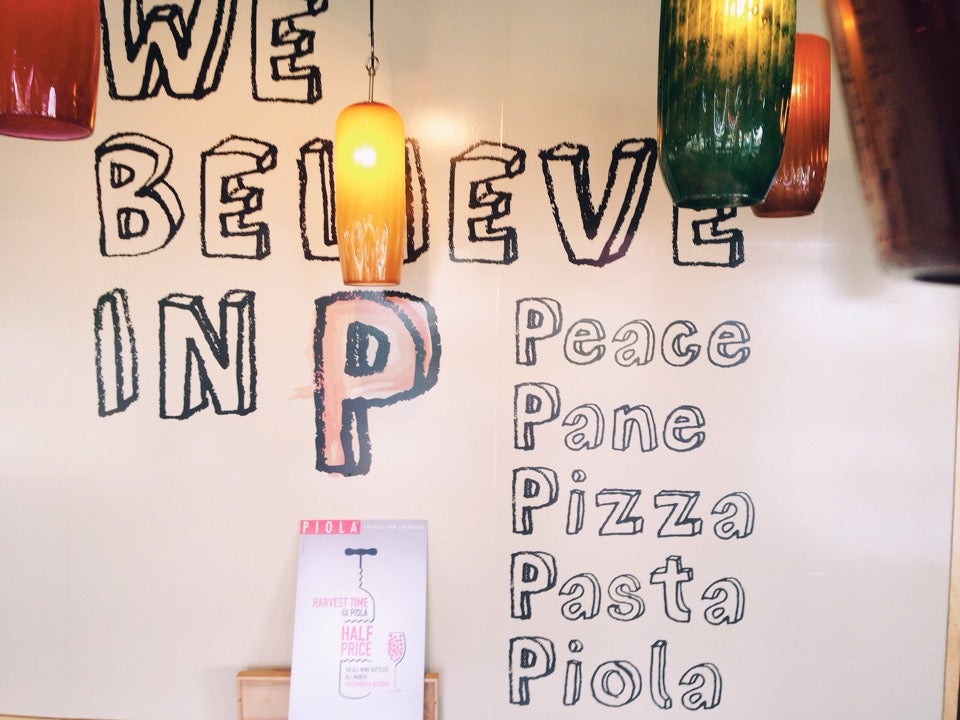 WE
BELIEVE
IN P
Peace
Pane
Pizza
Pasta
Piola
PIOLA FAMOSI PER LA PIZZA
HARVEST TIME
@ PIOLA
HALF
PRICE
ON ALL WINE BOTTLES
ALL MONTH
SEPTEMBER & OCTOBER